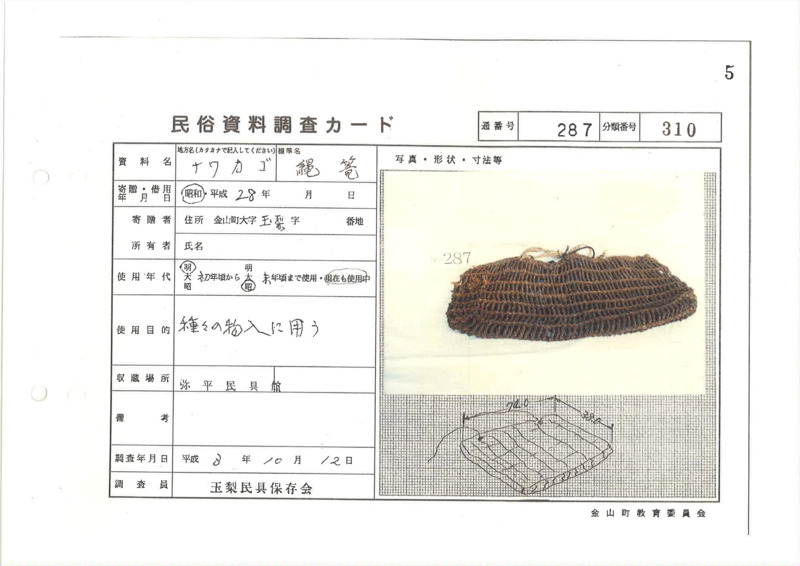 5
民俗資料調査カード
通番号 287 分類番号 310
資料名 地方名(カタカナで記入してください) ナワカゴ 標準名 縄篭
写真・形状・寸法等
寄贈・借用年月日 昭和・平成 28年 月 日
寄贈者 住所 金山町大字玉梨字 番地
所有者 氏名
使用年代 明大昭 初年頃から 明大昭 末年頃まで使用・現在も使用中
使用目的 種々の物入に用う
収蔵場所 弥平民具館
備考
調査年月日 平成 8年 10月 12日
調査員 玉梨民具保存会
287
74.0
38.0
金山町教育委員会